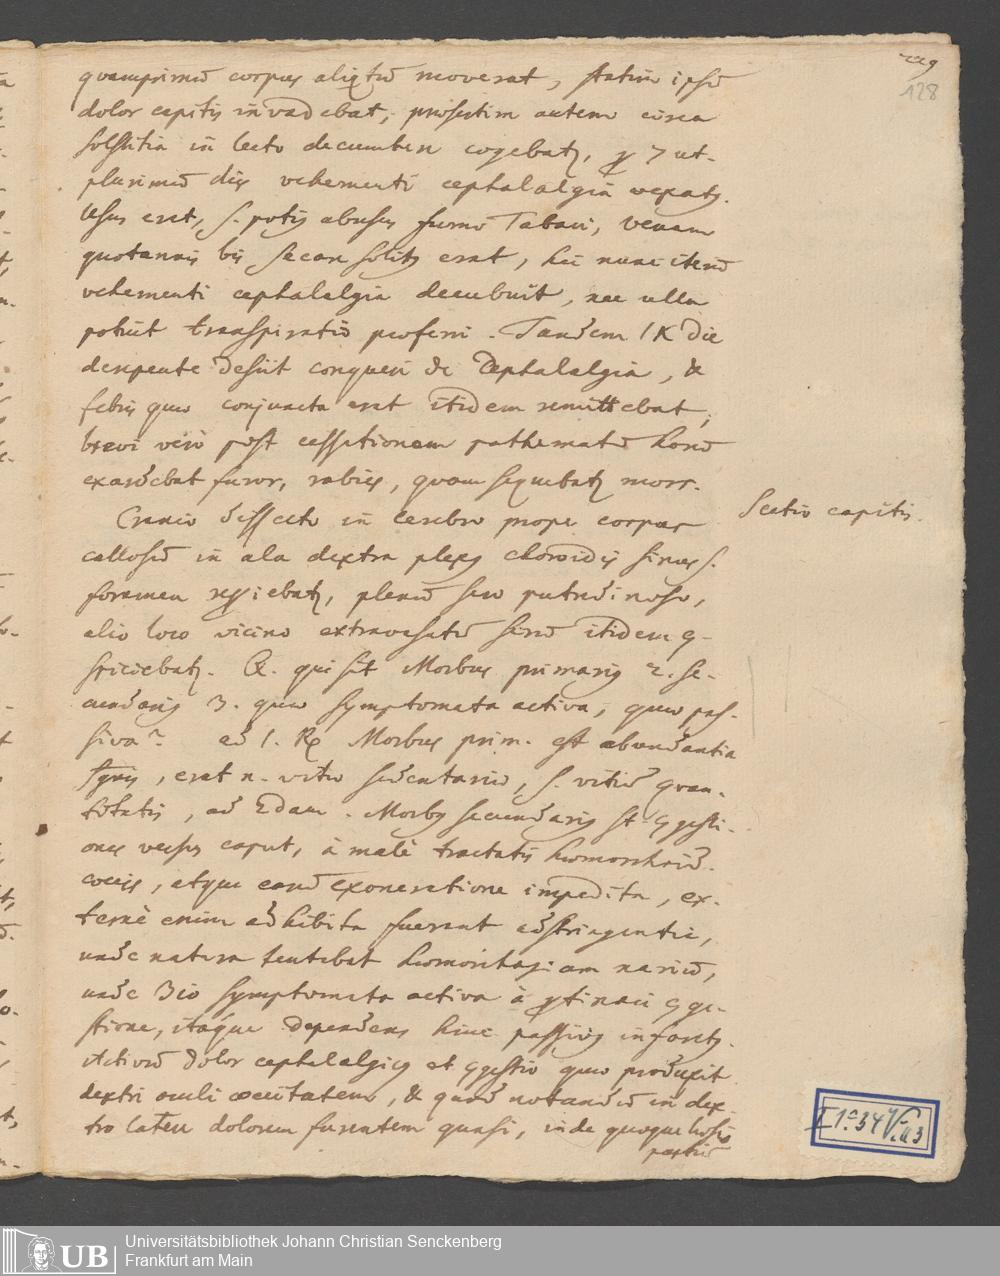 229
128
quamprimū corpus aliqtū moverat, statim ipsū
dolor capitis invadebat, prosertim autem circa
solstitia in lecto decumbere cogebatꝫ, ꝑ 7 ut-
plurimū dies vehementi cephalalgia vexatꝰ.
Usus erat, s. potiꝰ abusus fumo Tabaci, venam
quotannis bis secare solitꝰ erat, hic nunc iterū
vehementi cephalalgia decubuit, nec ulla
potuit transpiratio proferri. Tandem IX die
derepente desiit conqueri de Cephalalgia, &
febris quo conjuncta erat itidem remittebat,
brevi vero post cessationem pathematū horū
exardebat furor, rabies, quam sequebatꝫ mors.
Sectio capitis.
Cranio dissecto in cerebro prope corpus
callosū in ala dextra plexꝰ choroidis sinus s.
foramen reperiebatꝫ, plenū sero putredinoso,
alio loco vicino extravasatū serū itidem con-
spiciebatꝫ. Q. qui sit Morbus primariꝰ 2. se-
cundariꝰ 3. quo symptomata activa, quo pas-
siva? ad 1. Rꝫ Morbus prim. est abundantia
sgnis, erat n. vito sedentario, s. vitiū quan-
titatis, ad 2dam. Morbꝰ secundariꝰ st congesti-
ones versus caput, à malè tractatis homorrhoid.
coecis, atque earū exoneratione impedita, ex-
ternè enim adhibita fuerant adstringentia,
unde natura tentabat homorrhagiam nariū,
unde 3io symptomata activa à pertinaci conge-
stione, itaque dependens hinc passivꝰ infarctꝰ.
Activū dolor cephalalgicꝰ et congestio quo produxit
dextri oculi coecitatem, & quod notandū in dex-
tro latere dolorem furentem quasi, inde quoque
partiū
I 1c 34 V a 3
UB
Universitätsbibliothek Johann Christian Senckenberg
Frankfurt am Main